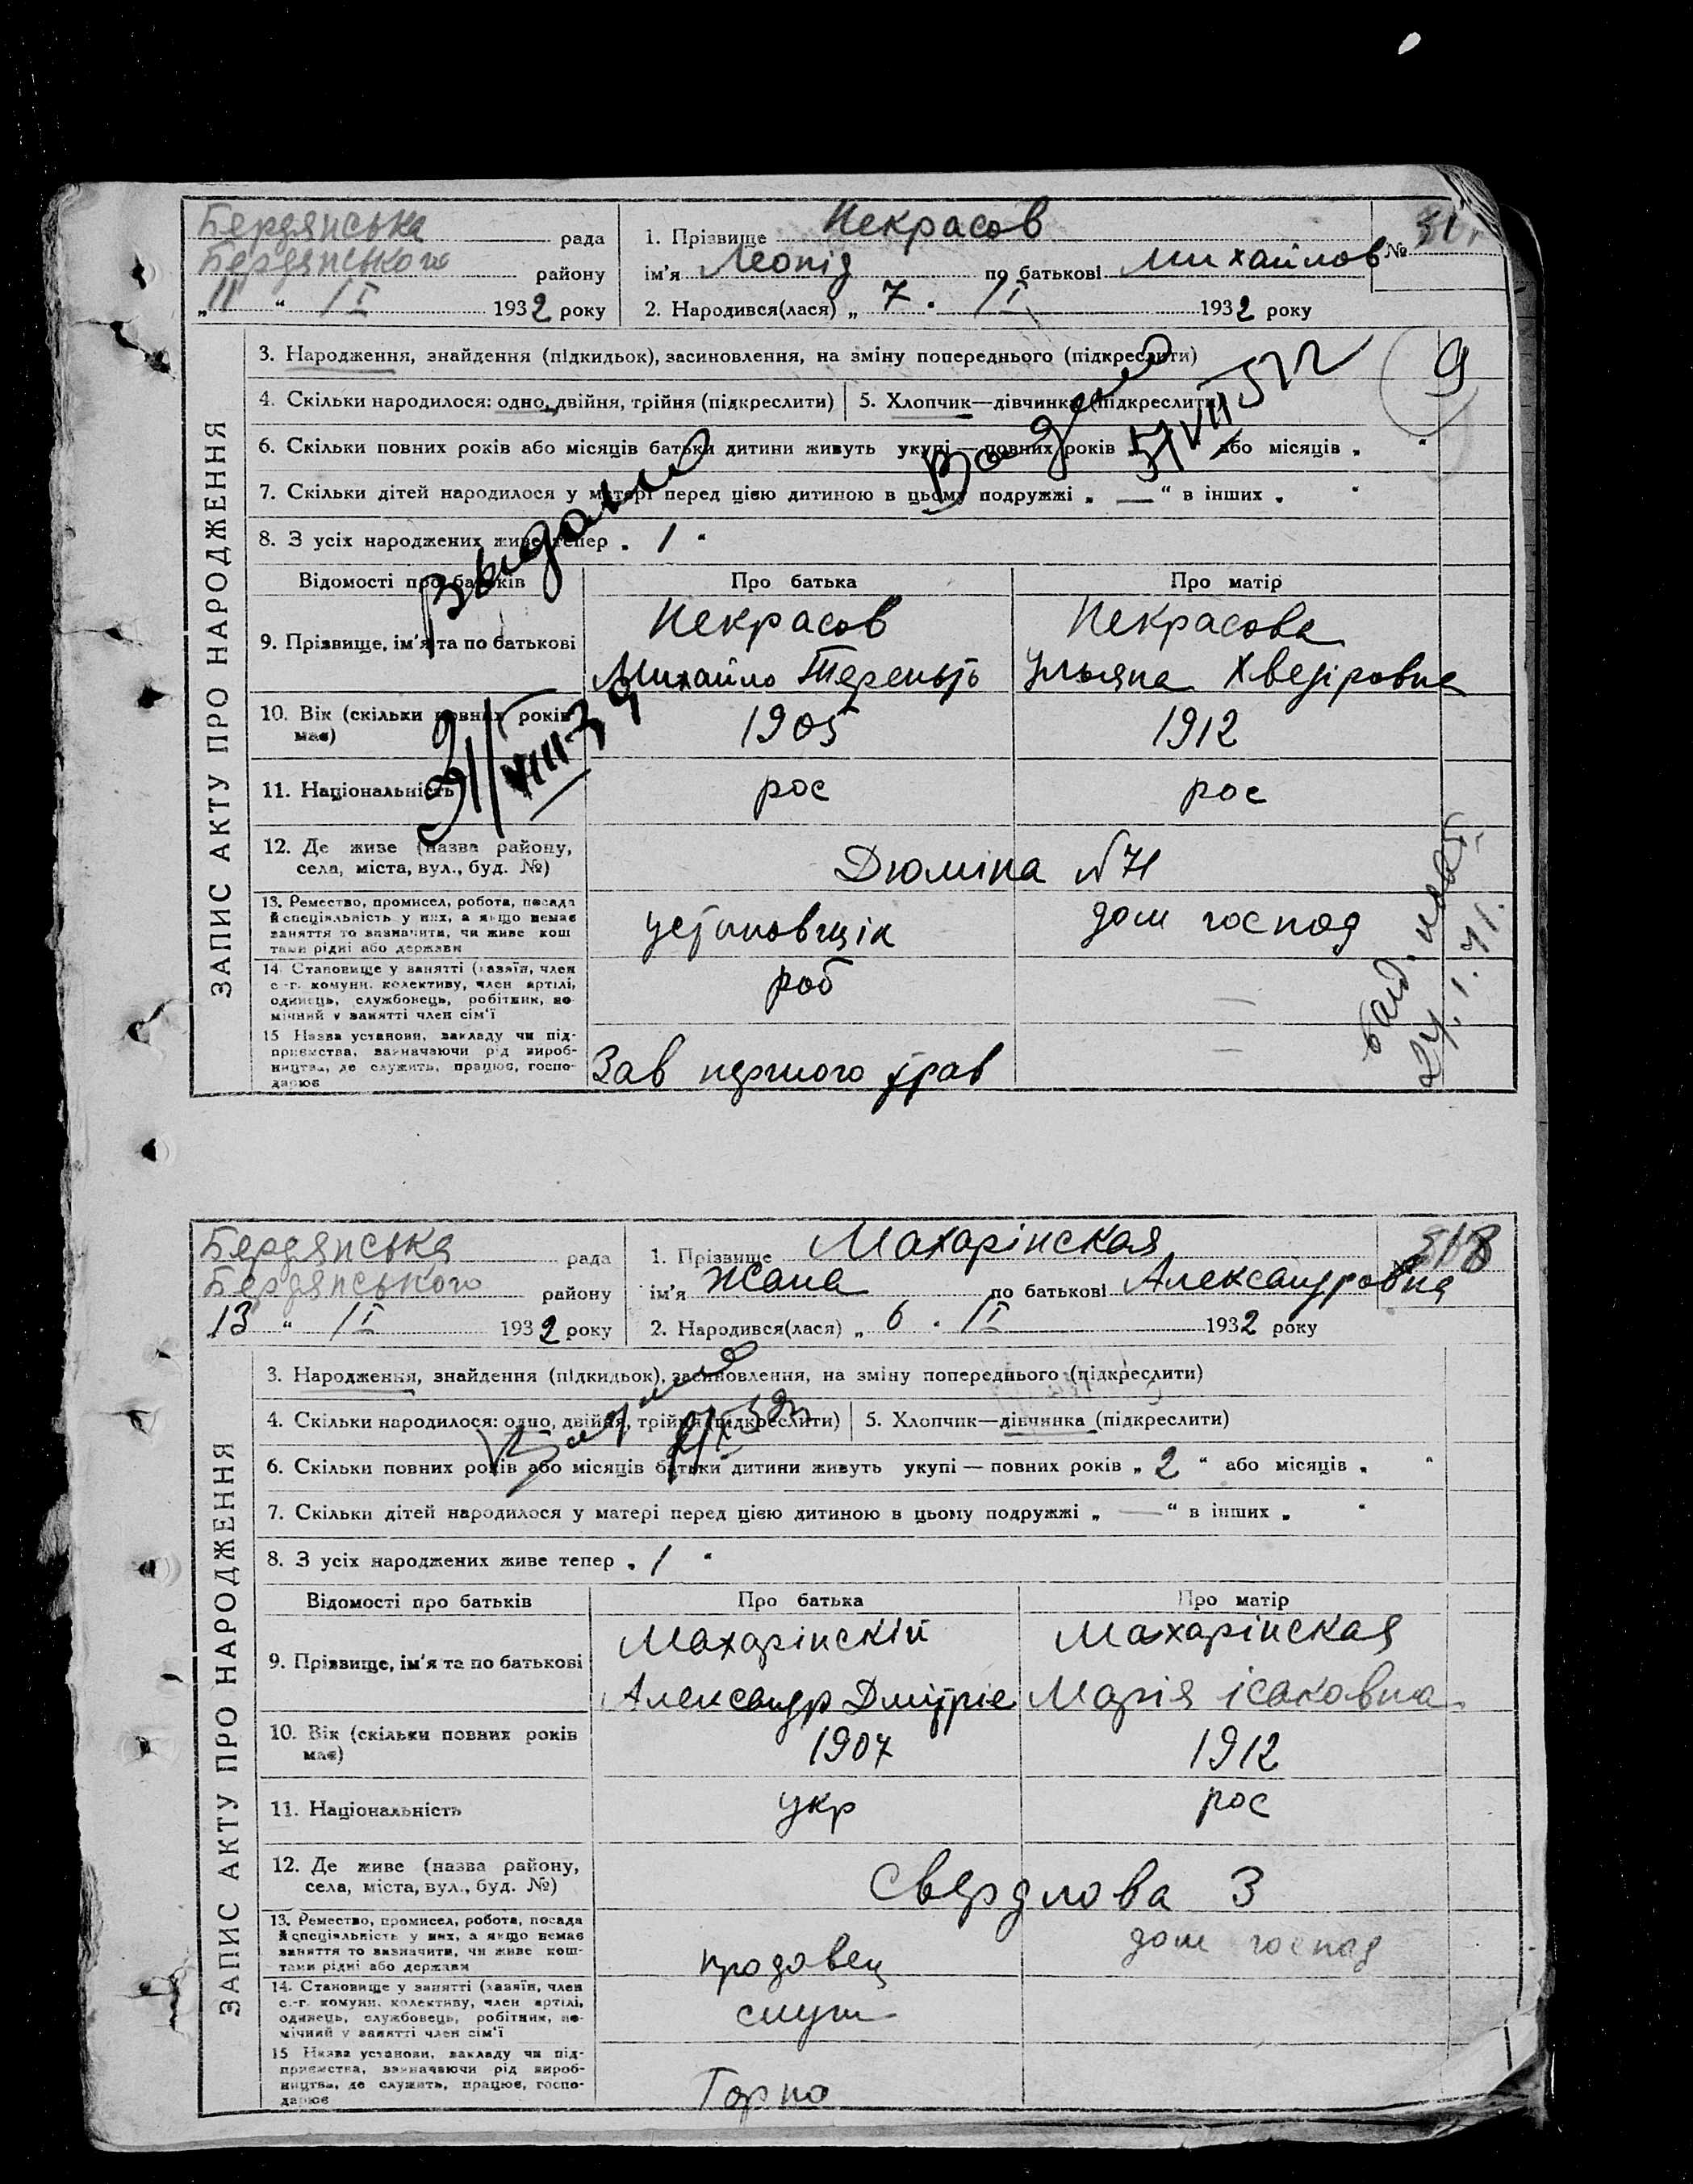 Бердянська рада
Бердянського району
„11“ /I 1932 року
1. Прізвище Некрасов
ім'я Леонід по батькові Михайлов
№ 51
2. Народився(лася) „7“ /I 1932 року
ЗАПИС АКТУ ПРО НАРОДЖЕННЯ
3. Народження, знайдення (підкидьок), засиновлення, на зміну попереднього (підкреслити)
9
4. Скільки народилося: одно, двійня, трійня (підкреслити) 5. Хлопчик—дівчинка (підкреслити)
6. Скільки повних років або місяців батьки дитини живуть укупі — повних років або місяців „ “
7. Скільки дітей народилося у матері перед цією дитиною в цьому подружжі „ — “ в інших „ “
8. З усіх народжених живе тепер „ 1 “
Выдано
Відомості про батьків Про батька Про матір
9. Прізвище, ім'я та по батькові
Некрасов Некрасова
Михайло Тереньть Ульяна Хведіровна
10. Вік (скільки повних років має) 1905 1912
31/VIII-39
11. Національність рос рос
12. Де живе (назва району, села, міста, вул., буд. №) Дюміна №71
13. Ремество, промисел, робота, посада й спеціяльність у них, а якщо немає заняття то визначити, чи живе коштами рідні або держави
установщік дом господ
14. Становище у занятті (хазяїн, член с.-г. комуни, колективу, член артілі, одинець, службовець, робітник, помічний у занятті член сім'ї
роб —
15. Назва установи, закладу чи підприємства, зазначаючи рід виробництва, де служить, працює, господарює
Зав першого трав —
24.1.71.
Бердянська рада
Бердянського району
13 “ /I 1932 року
1. Прізвище Махарінская
ім'я Жана по батькові Александровна
2. Народився(лася) „6“ /I 1932 року
ЗАПИС АКТУ ПРО НАРОДЖЕННЯ
3. Народження, знайдення (підкидьок), засиновлення, на зміну попереднього (підкреслити)
4. Скільки народилося: одно, двійня, трійня (підкреслити) 5. Хлопчик—дівчинка (підкреслити)
6. Скільки повних років або місяців батьки дитини живуть укупі — повних років „ 2 “ або місяців „ “
7. Скільки дітей народилося у матері перед цією дитиною в цьому подружжі „ — “ в інших „ “
8. З усіх народжених живе тепер „ 1 “
Відомості про батьків Про батька Про матір
9. Прізвище, ім'я та по батькові
Махарінскій Махарінская
Александр Дмітріе Марія ісаковна
10. Вік (скільки повних років має) 1907 1912
11. Національність укр рос
12. Де живе (назва району, села, міста, вул., буд. №) Свердлова 3
13. Ремество, промисел, робота, посада й спеціяльність у них, а якщо немає заняття то визначити, чи живе коштами рідні або держави
продавец дом господ
14. Становище у занятті (хазяїн, член с.-г. комуни, колективу, член артілі, одинець, службовець, робітник, помічний у занятті член сім'ї
служ
15. Назва установи, закладу чи підприємства, зазначаючи рід виробництва, де служить, працює, господарює
Горпо